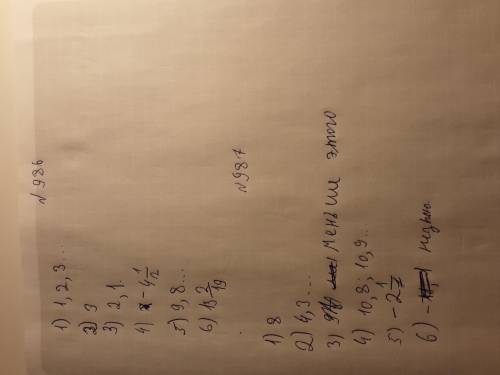 N 986
1) 1, 2, 3...
2) 3
3) 2, 1.
4) - 4 1/12
5) 9, 8...
6) 2/19
N 987
1) 8
2) 4, 3....
3) меньше этого
4) 10,8; 10,9...
5) - 2 1/2
6) -